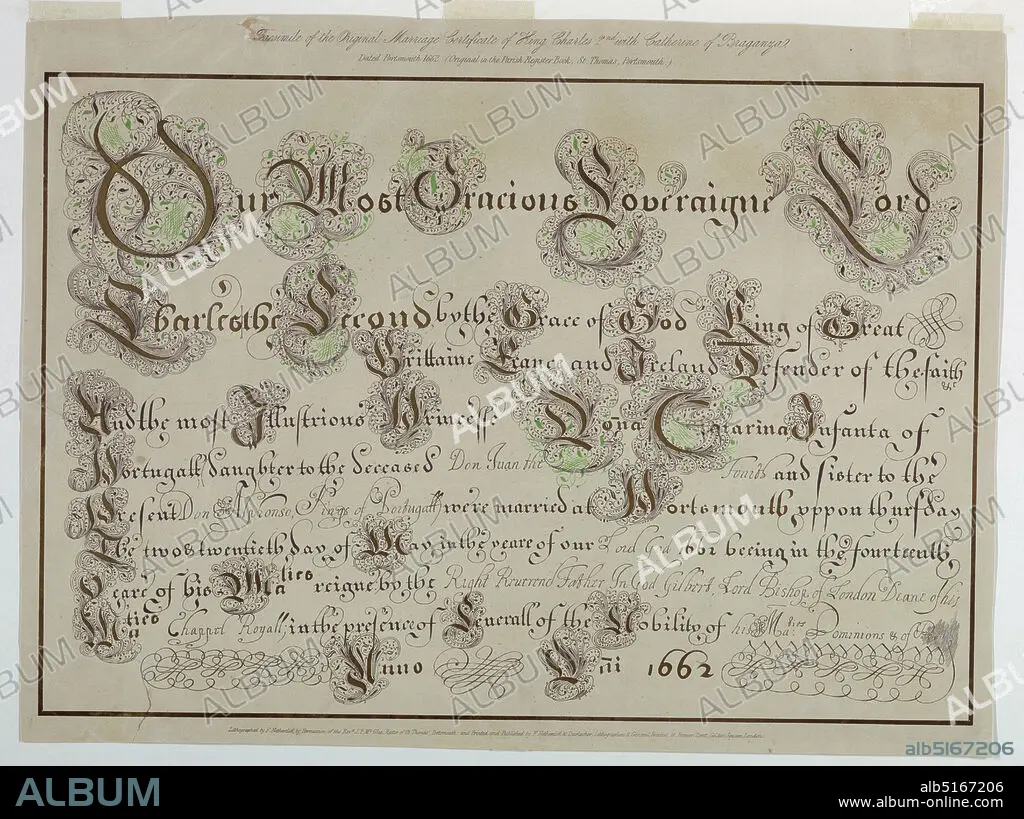 Facsimile of the Original Marriage Certificate of King Charles 2nd with Catherine of Braganza
Dated Portsmouth 1662 (Original in the Parish Register Book, St. Thomas, Portsmouth.)
Our Most Gracious Soveraigne Lord
Charles the Second by the Grace of God King of Great
Brittaine France and Ireland Defender of the faith &c
And the most Illustrious Princesse Dona Catarina Infanta of
Portugall daughter to the deceased Don Juan the fourth and sister to the
Present Don Alphonso, Kings of Portugall were married at Portsmouth uppon thursday
The two & twentieth day of May, in the yeare of our Lord God 1662 beeing in the fourteenth
yeare of his Maties reigne by the Right Reverend Father In God Gilbert, Lord Bishop of London Deane of his
Maties Chappel Royall, in the presence of Severall of the Nobility of his Maties Dominions & of
Anno Dni 1662
Lithographed by F. Netherclift, by Permission of the Revd
ALBUM
alb5167206
ALBUM
alb5167206
www.album-online.com